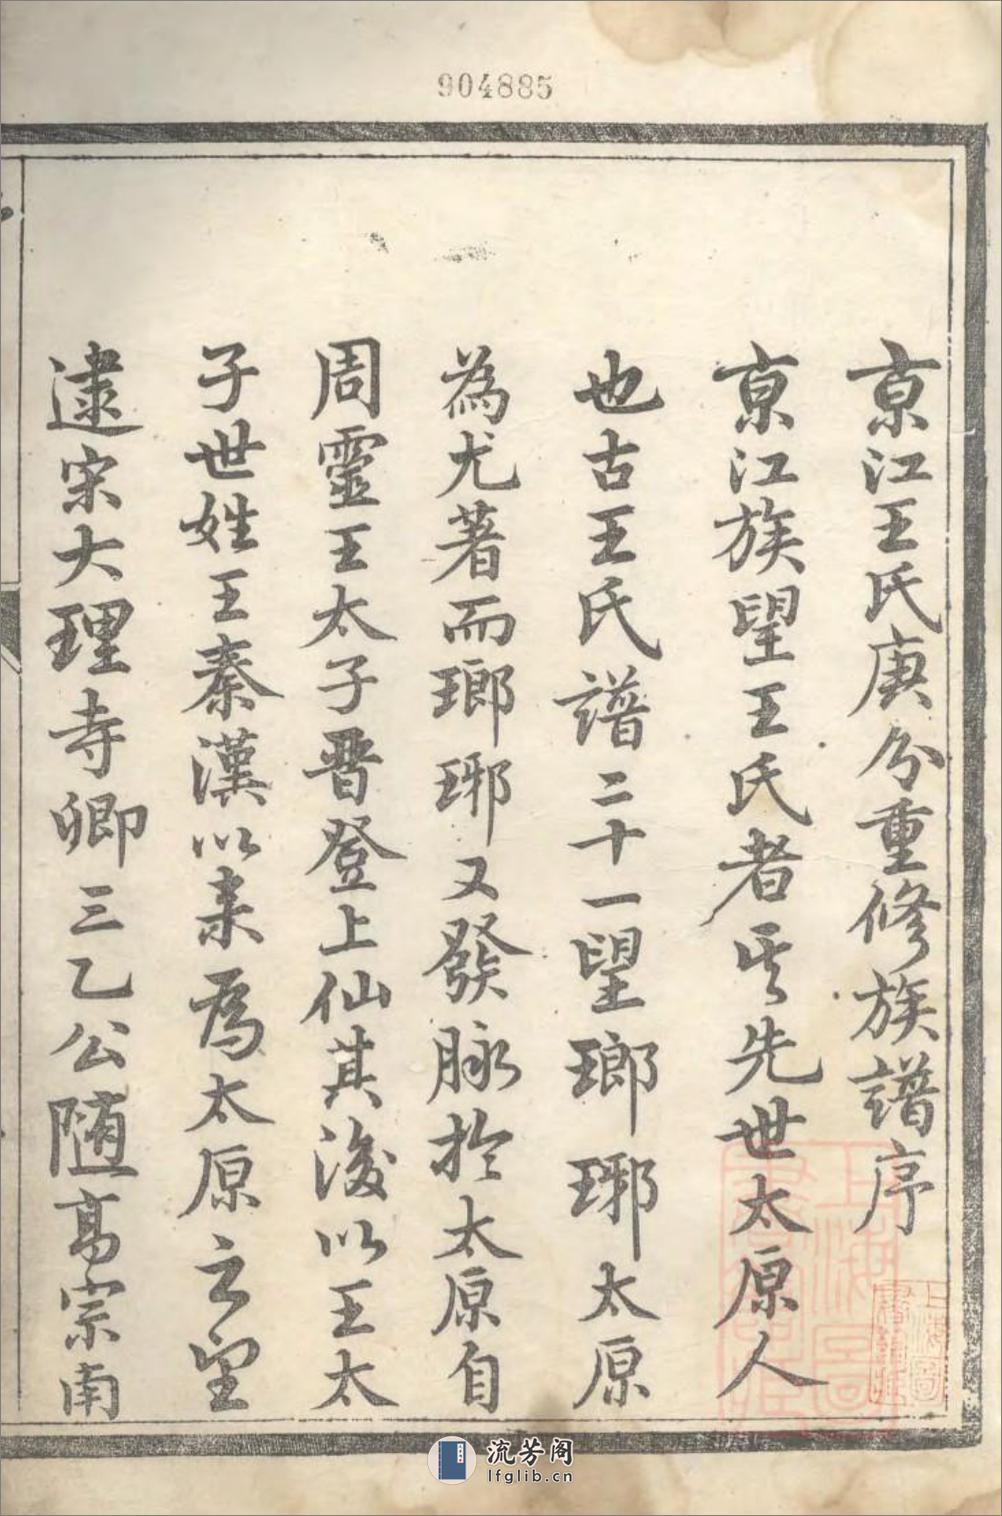 904885
京江王氏庚分重修族譜序
京江族望王氏者其先世太原人
也古王氏譜二十一望瑯琊太原
為尤著而瑯琊又發脉於太原自
周靈王太子晋登上仙其後以王太
子世姓王秦漢以来為太原之望
逮宋大理寺卿三乙公随髙宗南
上海圖書館藏
流芳阁
lfglib.cn